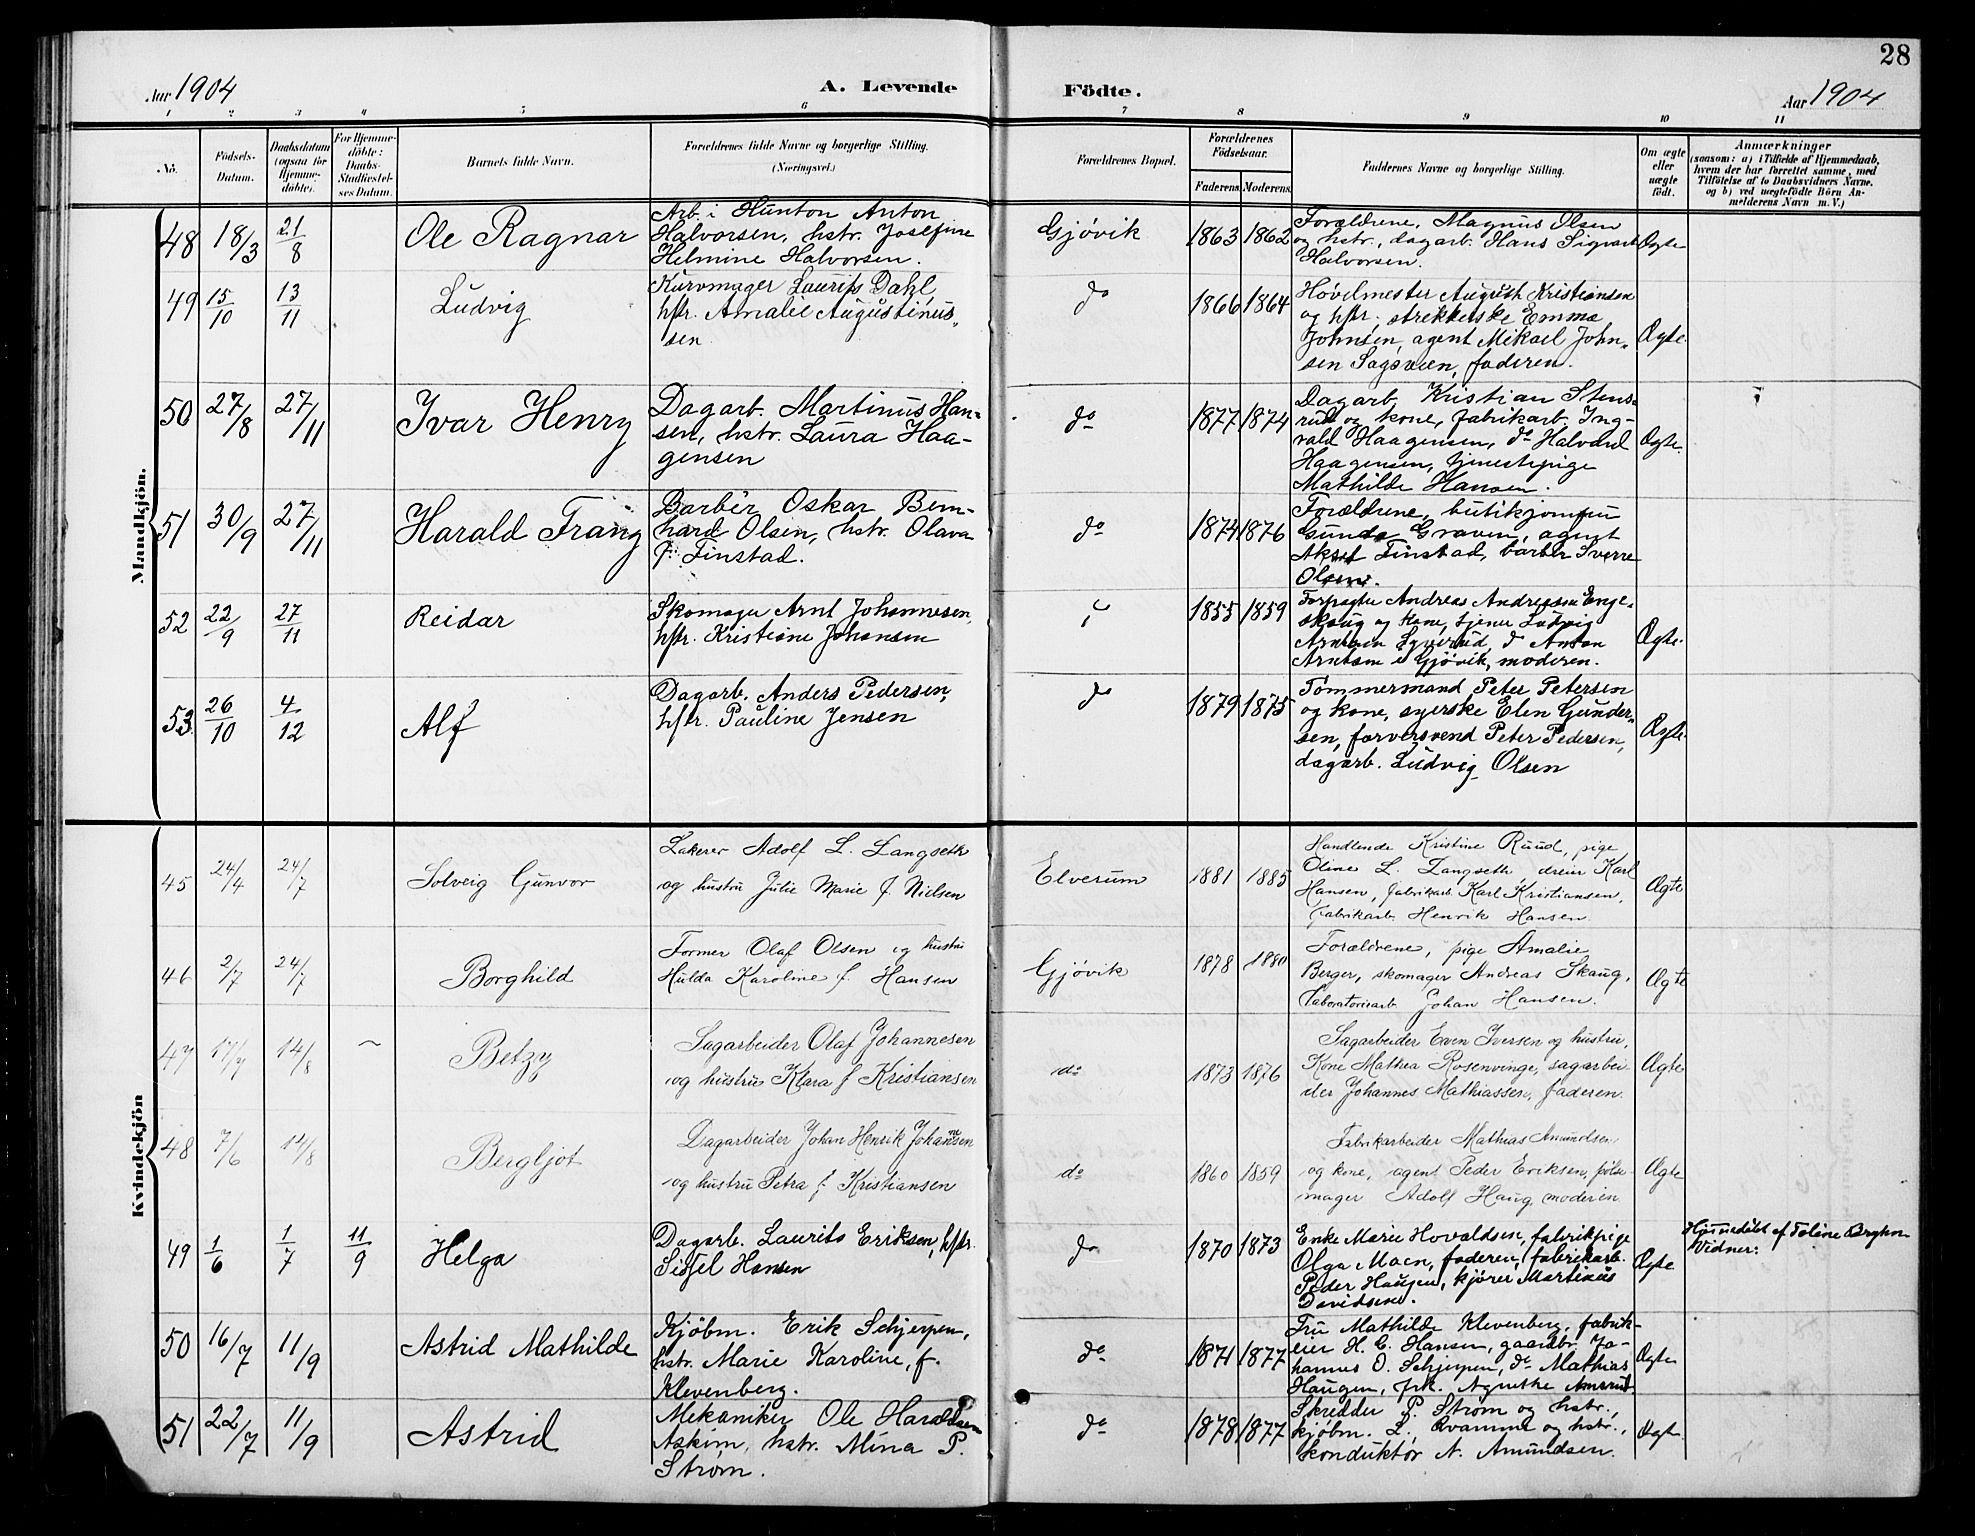 28
Aar 1904
A. Levende Födte.
Aar 1904
1 2 3 4 5 6 7 8 9 10 11
No.
Födsels-Datum.
Daabsdatum (ogsaa for Hjemme-döbte).
For Hjemme-döbte: Daabs-Stadfæstel-ses Datum.
Barnets fulde Navn.
Forældrenes fulde Navne og borgerlige Stilling. (Næringsvei.)
Forældrenes Bopæl.
Forældrenes Födselsaar.
Faderens. Moderens.
Faddernes Navne og borgerlige Stilling.
Om ægte eller uægte födt.
Anmærkninger
(saasom: a) i Tilfælde af Hjemmedaab, hvem der har forrettet samme, med Tilföielse af to Daabsvidners Navne, og b) ved uægtefödte Börn An-melderens Navn m. V.)
Mandkjön.
48 18/3 21/8 Ole Ragnar
Arb. i Hunton Anton
Halvorsen, hstr. Josefine
Helmine Halvorsen.
Gjövik 1863 1862
Forældrene, Magnus Olsen
og hstr., dagarb. Hans Sigvart
Halvorsen.
Ægte
49 15/10 13/11 Ludvig
Kurvmager Laurits Dahl
hstr. Amalie Augustinus-
sen
do 1866 1864
Høvelmester August Kristiansen
og hstr., strekkerske Emma
Johnsen, agent Mikael John-
sen Sagsveen, faderen.
Ægte.
50 27/8 27/11 Ivar Henry
Dagarb. Martinus Han-
sen, hstr. Laura Haa-
gensen
do 1877 1874
Dagarb. Kristian Stens-
rud og kone, fabrikarb. Ing-
vald Haagensen, do Halvard
Haagensen, tjenestepige
Mathilde Hansen.
Ægte.
51 30/9 27/11 Harald Frang
Barbér Oskar Bern-
hard Olsen, hstr. Olava
f. Finstad.
do 1874 1876
Forældrene, butikjomfru
Gunda Graven, agent
Aksel Finstad, barber Sverre
Olsen.
52 22/9 27/11 Reidar
Skomager Arnt Johannesen,
hstr. Kristiane Johansen
1855 1859
Forpagter Andreas Andreasen Enge-
skaug og kone, tjener Ludvig
Arntsen, do Anton
Arntsen i Gjövik, moderen.
Ægte.
53 26/10 4/12 Alf
Dagarb. Anders Pedersen,
hstr. Pauline Jensen
do 1879 1875
Tömmermand Peter Petersen
og kone, syerske Elen Gunder-
sen, farversvend Peter Pedersen,
dagarb. Ludvig Olsen
Ægte.
Kvindekjön
45 24/4 24/7 Solveig Gunvor
Lakerer Adolf L. Langseth
og hustru Julie Marie f. Nielsen
Elverum 1881 1885
Handlende Kristine Ruud, pige
Oline L. Langseth, dreier Karl
Hansen, fabrikarb. Karl Kristiansen,
fabrikarb. Henrik Hansen.
Ægte
46 2/7 24/7 Borghild
Former Olaf Olsen og hustru
Hulda Karoline f. Hansen
Gjövik 1878 1880
Forældrene, pige Amalie
Berger, skomager Andreas Skaug,
Laboratoriearb. Johan Hansen.
Ægte
47 17/7 14/8 ~ Betzy
Sagarbeider Olaf Johannesen
og hustru Klara f. Kristiansen
do 1873 1876
Sagarbeider Even Iversen og hustru,
Kone Mathea Rosenvinge, sagarbei-
der Johannes Mathiassen, faderen.
Ægte
48 7/6 14/8 Bergljot
Dagarbeider Johan Henrik Johannesen
og hustru Petra f. Kristiansen
do 1860 1859
Fabrikarbeider Mathias Amundsen
og kone, agent Peder Eriksen, pölse-
mager Adolf Haug, moderen.
Ægte
49 1/6 1/7 11/9 Helga
Dagarb. Laurits Eriksen, hstr.
Sissel Hansen
do 1870 1873
Enke Marie Hovaldsen, fabrikpige
Olga Moen, faderen, fabrikarb.
Peder Haugen, kjörer Martinus
Davidsen.
Ægte
Hjemmedöbt af
Vidner:
50 16/7 11/9 Astrid Mathilde
Kjöbm. Erik Schjerpen,
hstr. Marie Karoline, f.
Klevenberg.
do 1871 1877
Fru Mathilde Klevenberg, fabrik-
eier H. C. Hansen, gaardbr. Jo-
hannes O. Schjerpen, do Mathias
Haugen, frk. Agnethe
Ægte
51 22/7 11/9 Astrid
Mekaniker Ole Haraldsen
Askim, hstr. Mina P.
Ström.
do 1878 1877
Skredder P. Ström og hstr.,
kjöbm. L. Kvamme og hstr.,
konduktör N. Amundsen.
Ægte